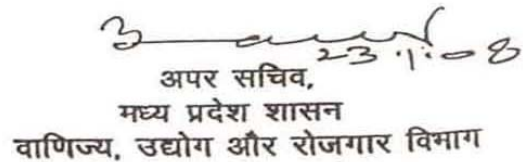 23.1.08
अपर सचिव,
मध्य प्रदेश शासन
वाणिज्य, उद्योग और रोजगार विभाग